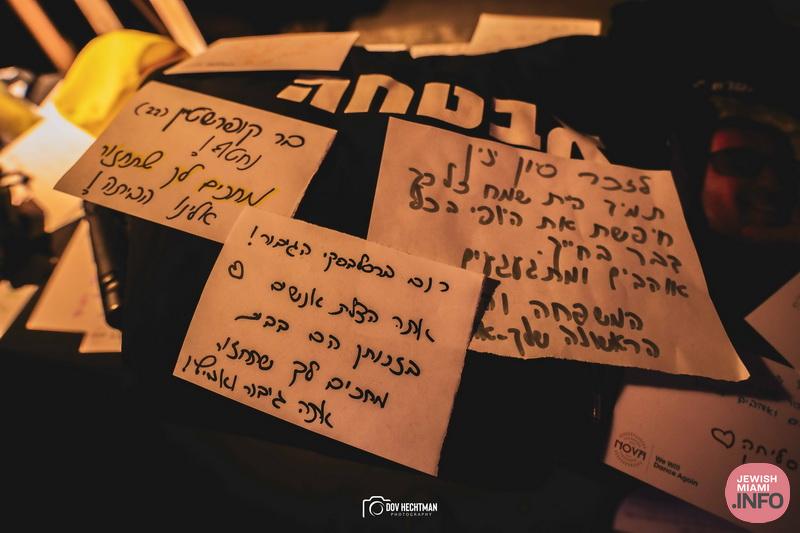 אבטחה
בר קופרשטיין (22)
נחטף!
מחכים לך שתחזור
אלינו הביתה!
לזכר סיון
תמיד היית שמח כל כך
חיפשת את היופי בכל
דבר בחייך
אוהבים ומתגעגעים
המשפחה
הראשונה שלך-
רום ברסלבסקי הגיבור!
אתה הצלת אנשים
בזכותך הם בבית
מחכים לך שתחזור
אתה גיבור ואמיץ!
סליחה
NOVA
We Will
Dance Again
DOV HECHTMAN
PHOTOGRAPHY
JEWISH
MIAMI
.INFO